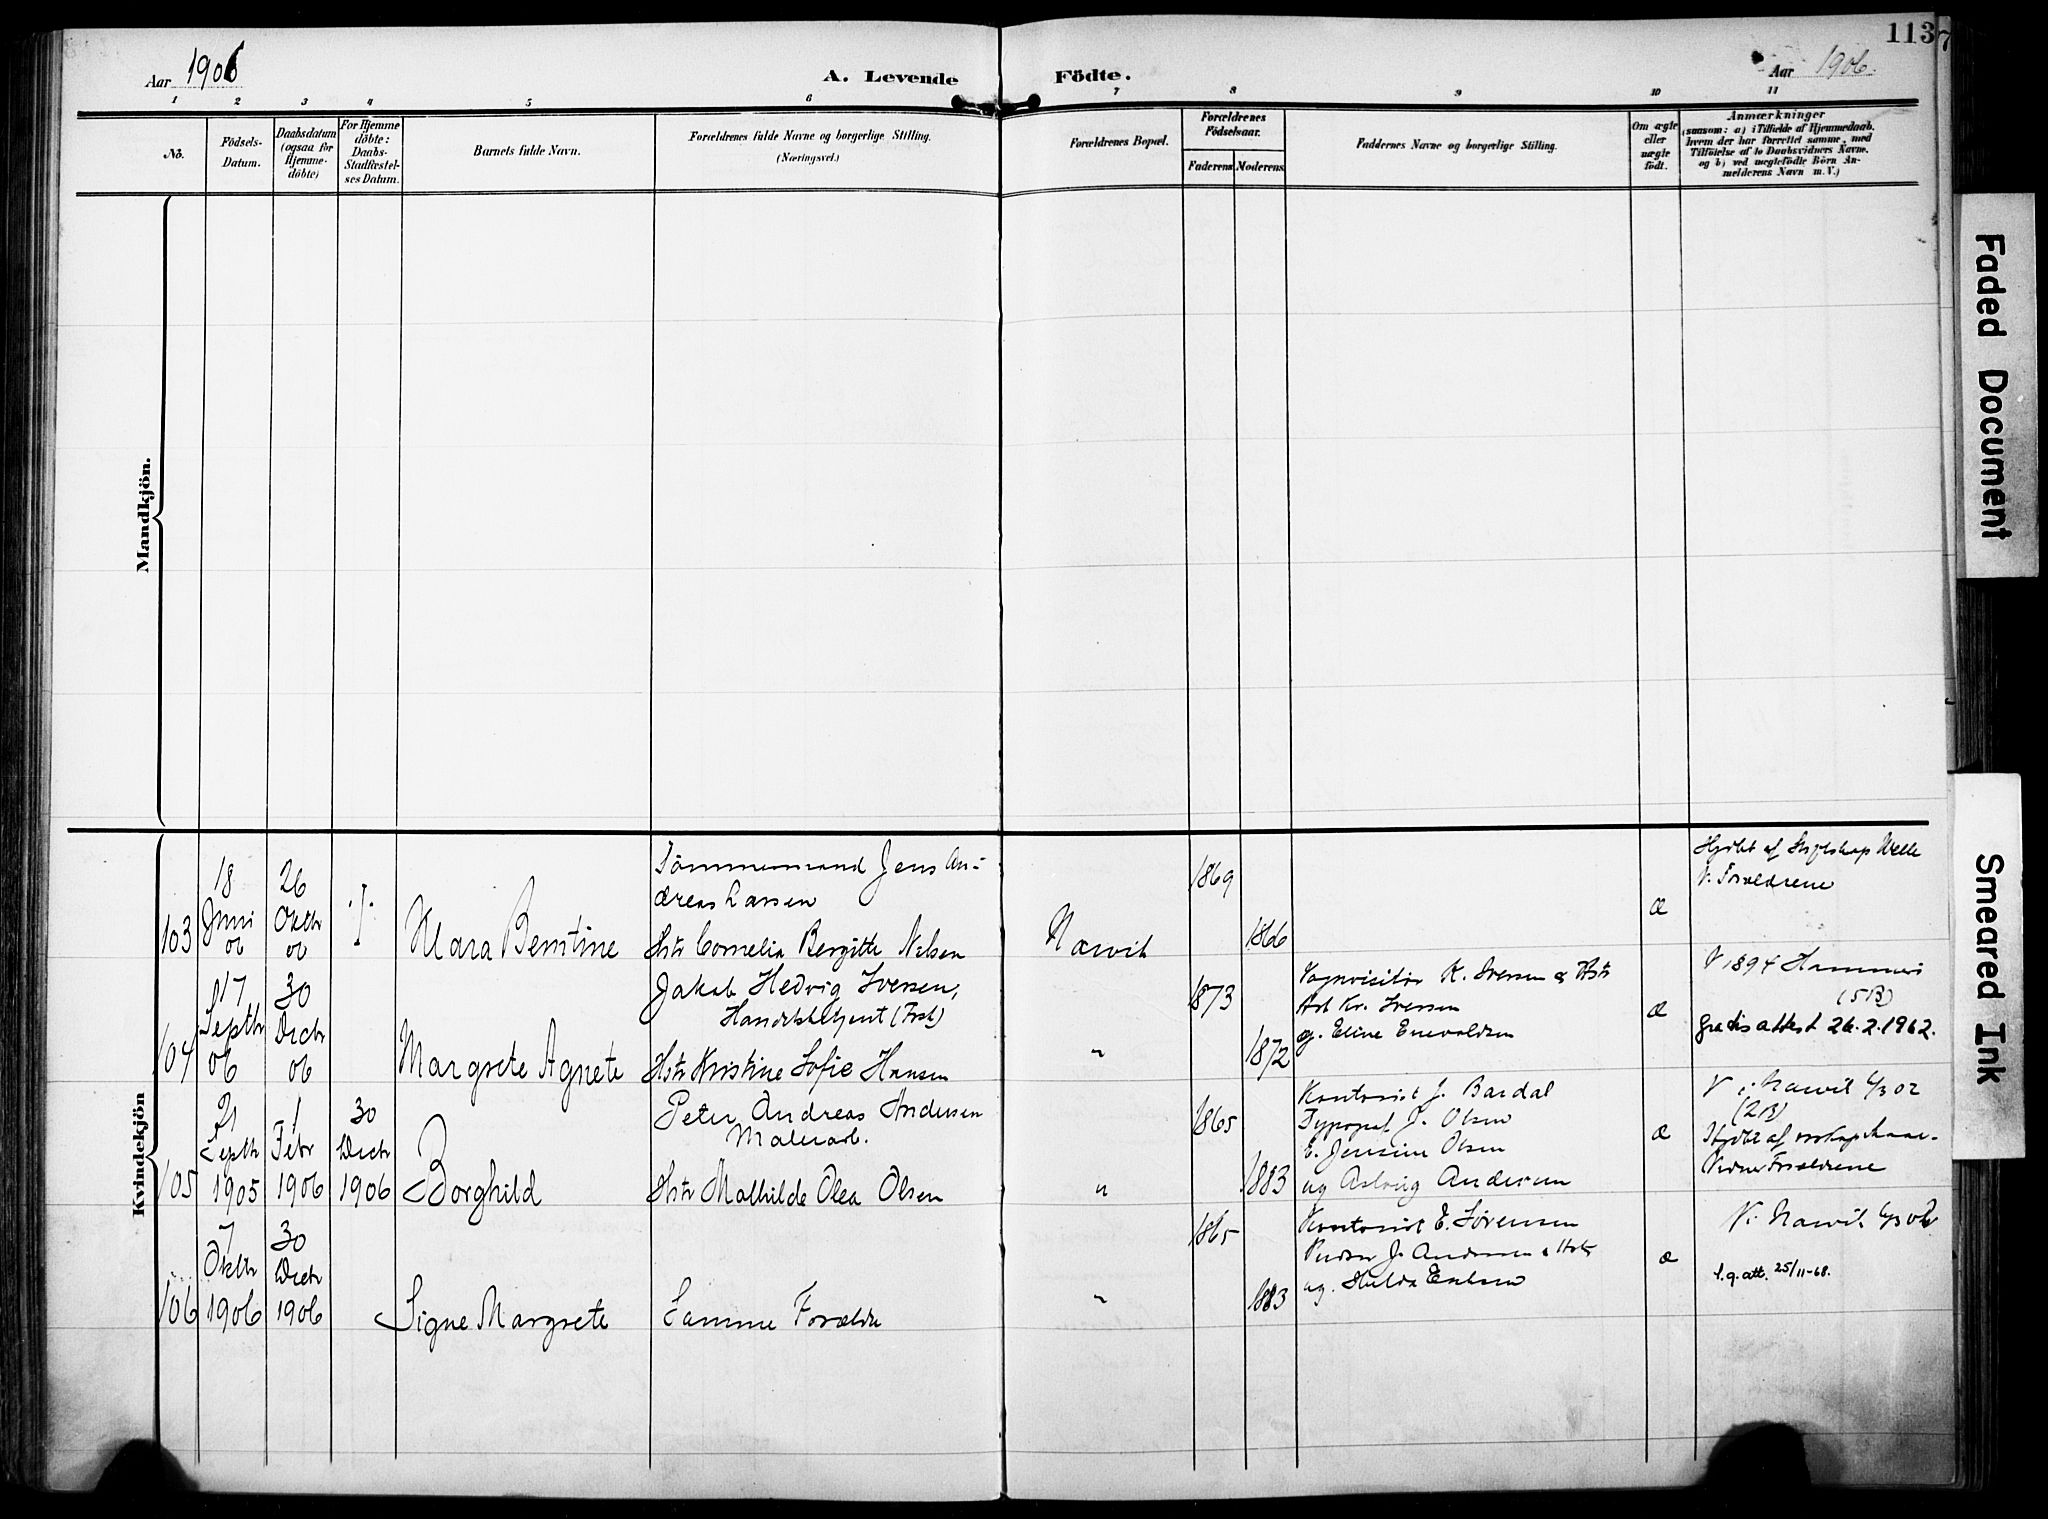 Aar 1906
A. Levende Födte.
Aar 1906.
113
1 2 3 4 5 6 7 8 9 10 11
No.
Födsels-Datum.
Daabsdatum (ogsaa for Hjemme-döbte)
For Hjemme döbte: Daabs-Stadfæstelses Datum.
Barnets fulde Navn.
Forældrenes fulde Navne og borgerlige Stilling.
(Næringsvei.)
Forældrenes Bopæl.
Forældrenes Födselsaar.
Faderens
Moderens
Faddernes Navne og borgerlige Stilling.
Om ægte eller uægte födt.
Anmærkninger
(saasom: a) i Tilfælde af Hjemmedaab,
hvem der har forrettet samme, med
Tilföielse af to Daabsvidners Navne.
og b) ved uægtefödte Börn An-
melderens Navn m. V.)
Mandkjön.
Kvindekjön
103
18 Juni 06
26 Oktbr 06
Klara Berntine
Tømmermand Jens An-
dreas Larsen
Hstr Cornelia Bergitte Nilsen
Narvik
1869
1866
Æ
V. Forældrene
104
17 Septbr 06
30 Decbr 06
Margrete Agnete
Jakob Hedvig Iversen,
Handelsagent
Hstr Kristine Sofie Hansen
"
1873
1872
Vognvisitør K. Iversen & Hstr
Kr. Iversen
og. Eline Enevoldsen
Æ
V 1894 Hammer
(5B)
gratis attest 26.2.1962.
105
21 Septbr 1905
1 Febr 1906
30 Decbr 1906
Borghild
Peter Andreas Andersen
Malerarb.
Hstr Mathilde Olea Olsen
"
1865
1883
Kontorist J. Bardal
Typograf J. Olsen
E. Jensine Olsen
og Andersen
Æ
V i Narvik 6/3 02
(2B)
Vidner Forældrene
106
7 Oktbr 1906
30 Decbr 1906
Signe Margrete
Samme Forældre
"
1865
1883
Kontorist E. Sørensen
Pudser J. Andersen & Hstr
og. Hulda
Æ
V. i Narvik 6/3 02
f.g.att. 25/11-68.
Faded Document
Smeared Ink